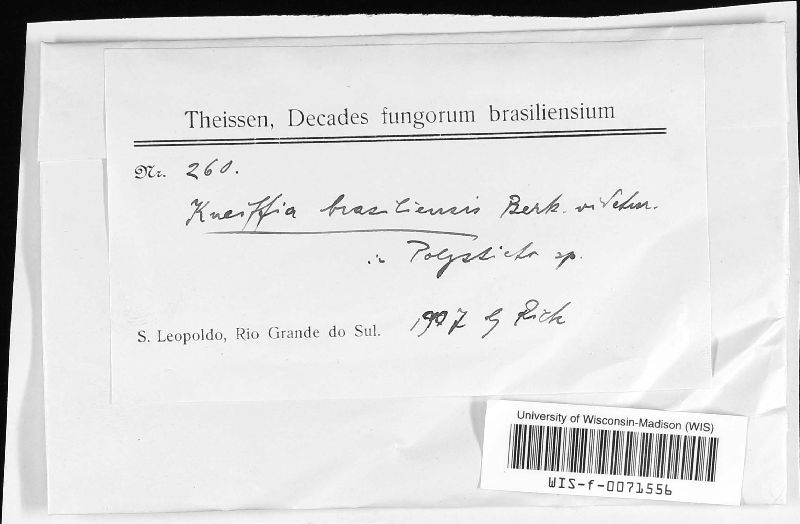 Theissen, Decades fungorum brasiliensium
Nr. 260.
Kneiffia brasiliensis Berk.
in Polysticto sp.
S. Leopoldo, Rio Grande do Sul. 1907 lg Rick
University of Wisconsin-Madison (WIS)
WIS-f-0071556